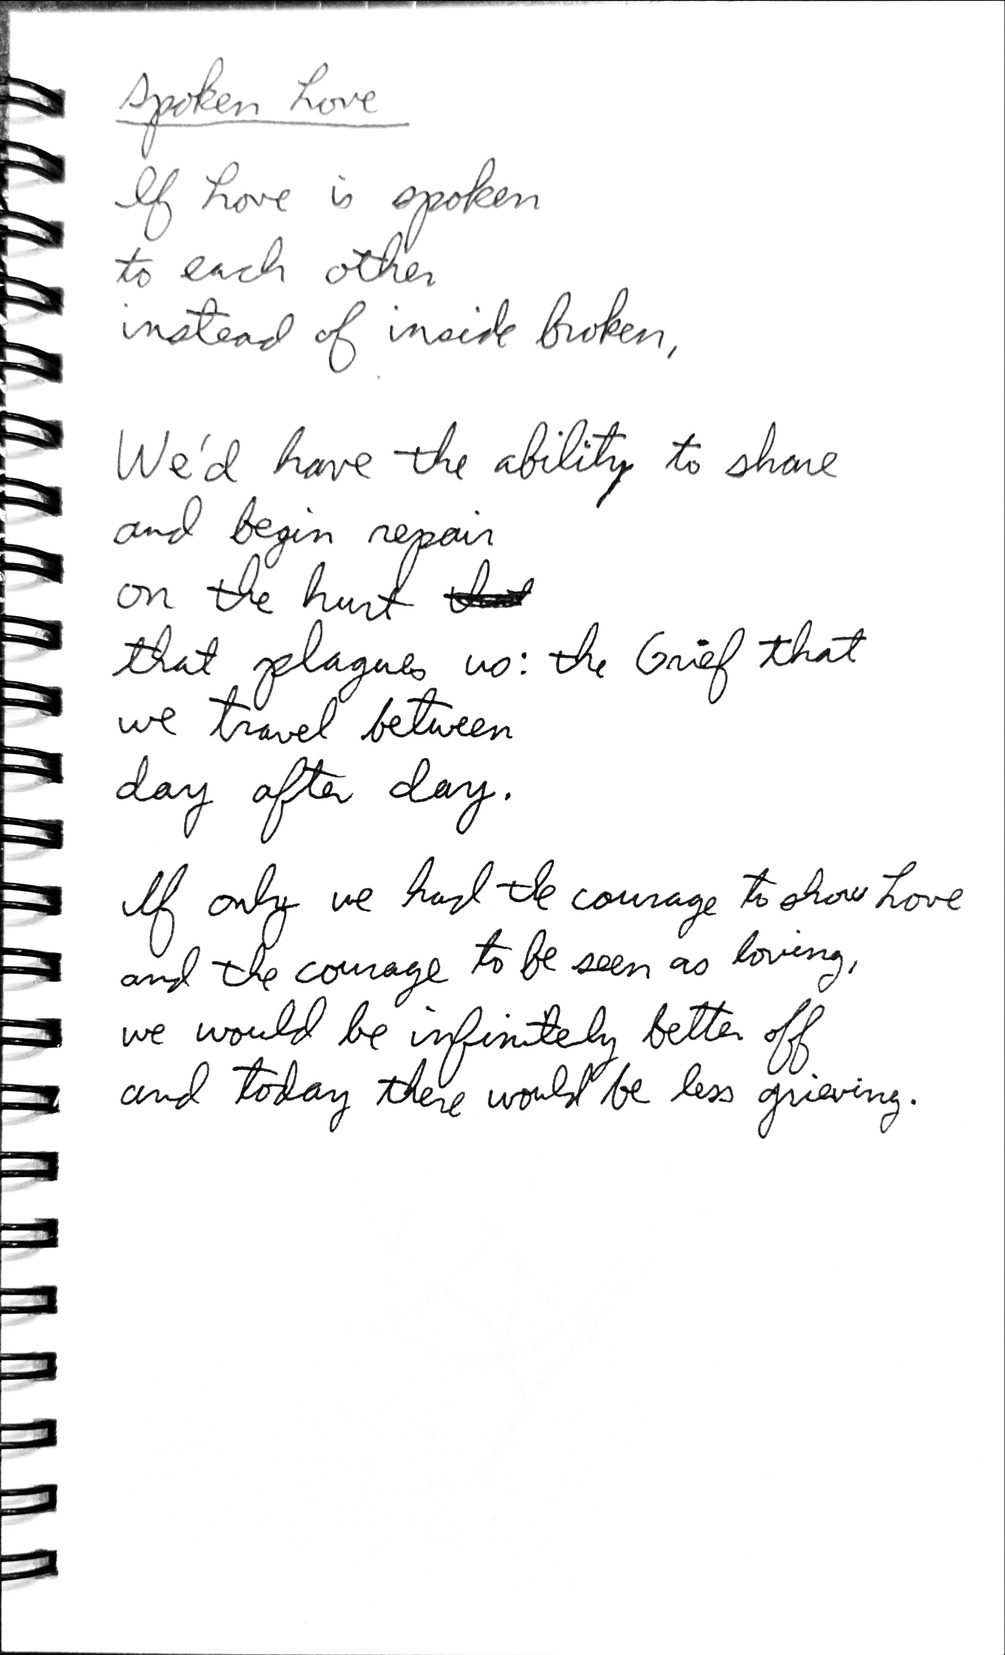 Spoken Love
If Love is spoken
to each other
instead of inside broken,
We'd have the ability to share
and begin repair
on the hurt that
that plagues us: the Grief that
we travel between
day after day.
If only we had the courage to show Love
and the courage to be seen as loving,
we would be infinitely better off
and today there would be less grieving.